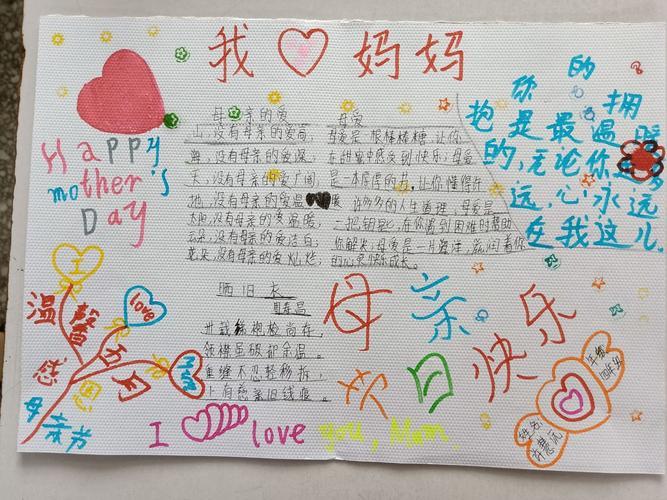 我 妈妈
Happy
mother's
Day
你的拥
抱是最温暖
的,无论你
远,心永远
在我这儿.
母亲的爱
山,没有母亲的爱高,
海,没有母亲的爱深,
天,没有母亲的爱广阔
地,没有母亲的爱温暖
太阳,没有母亲的爱温暖,
云朵,没有母亲的爱洁白,
花朵,没有母亲的爱灿烂,
母爱
母爱是一根棒棒糖,让你
在甜蜜中感受到快乐;母爱
是一本厚厚的书,让你懂得许
许多多的人生道理,母爱是
一把钥匙,在你遇到困难时帮助
你解决,母爱是一片海洋,滋润着你
的心灵快乐成长。
晒旧衣
周寿昌
卅载 袍检尚存,
领襟虽破却余温。
重缝不忍轻移拆,
上有慈亲旧线痕。
母亲
节日快乐
温馨五月
感恩
母亲节
love
I love you, Mom
年级
姓名: